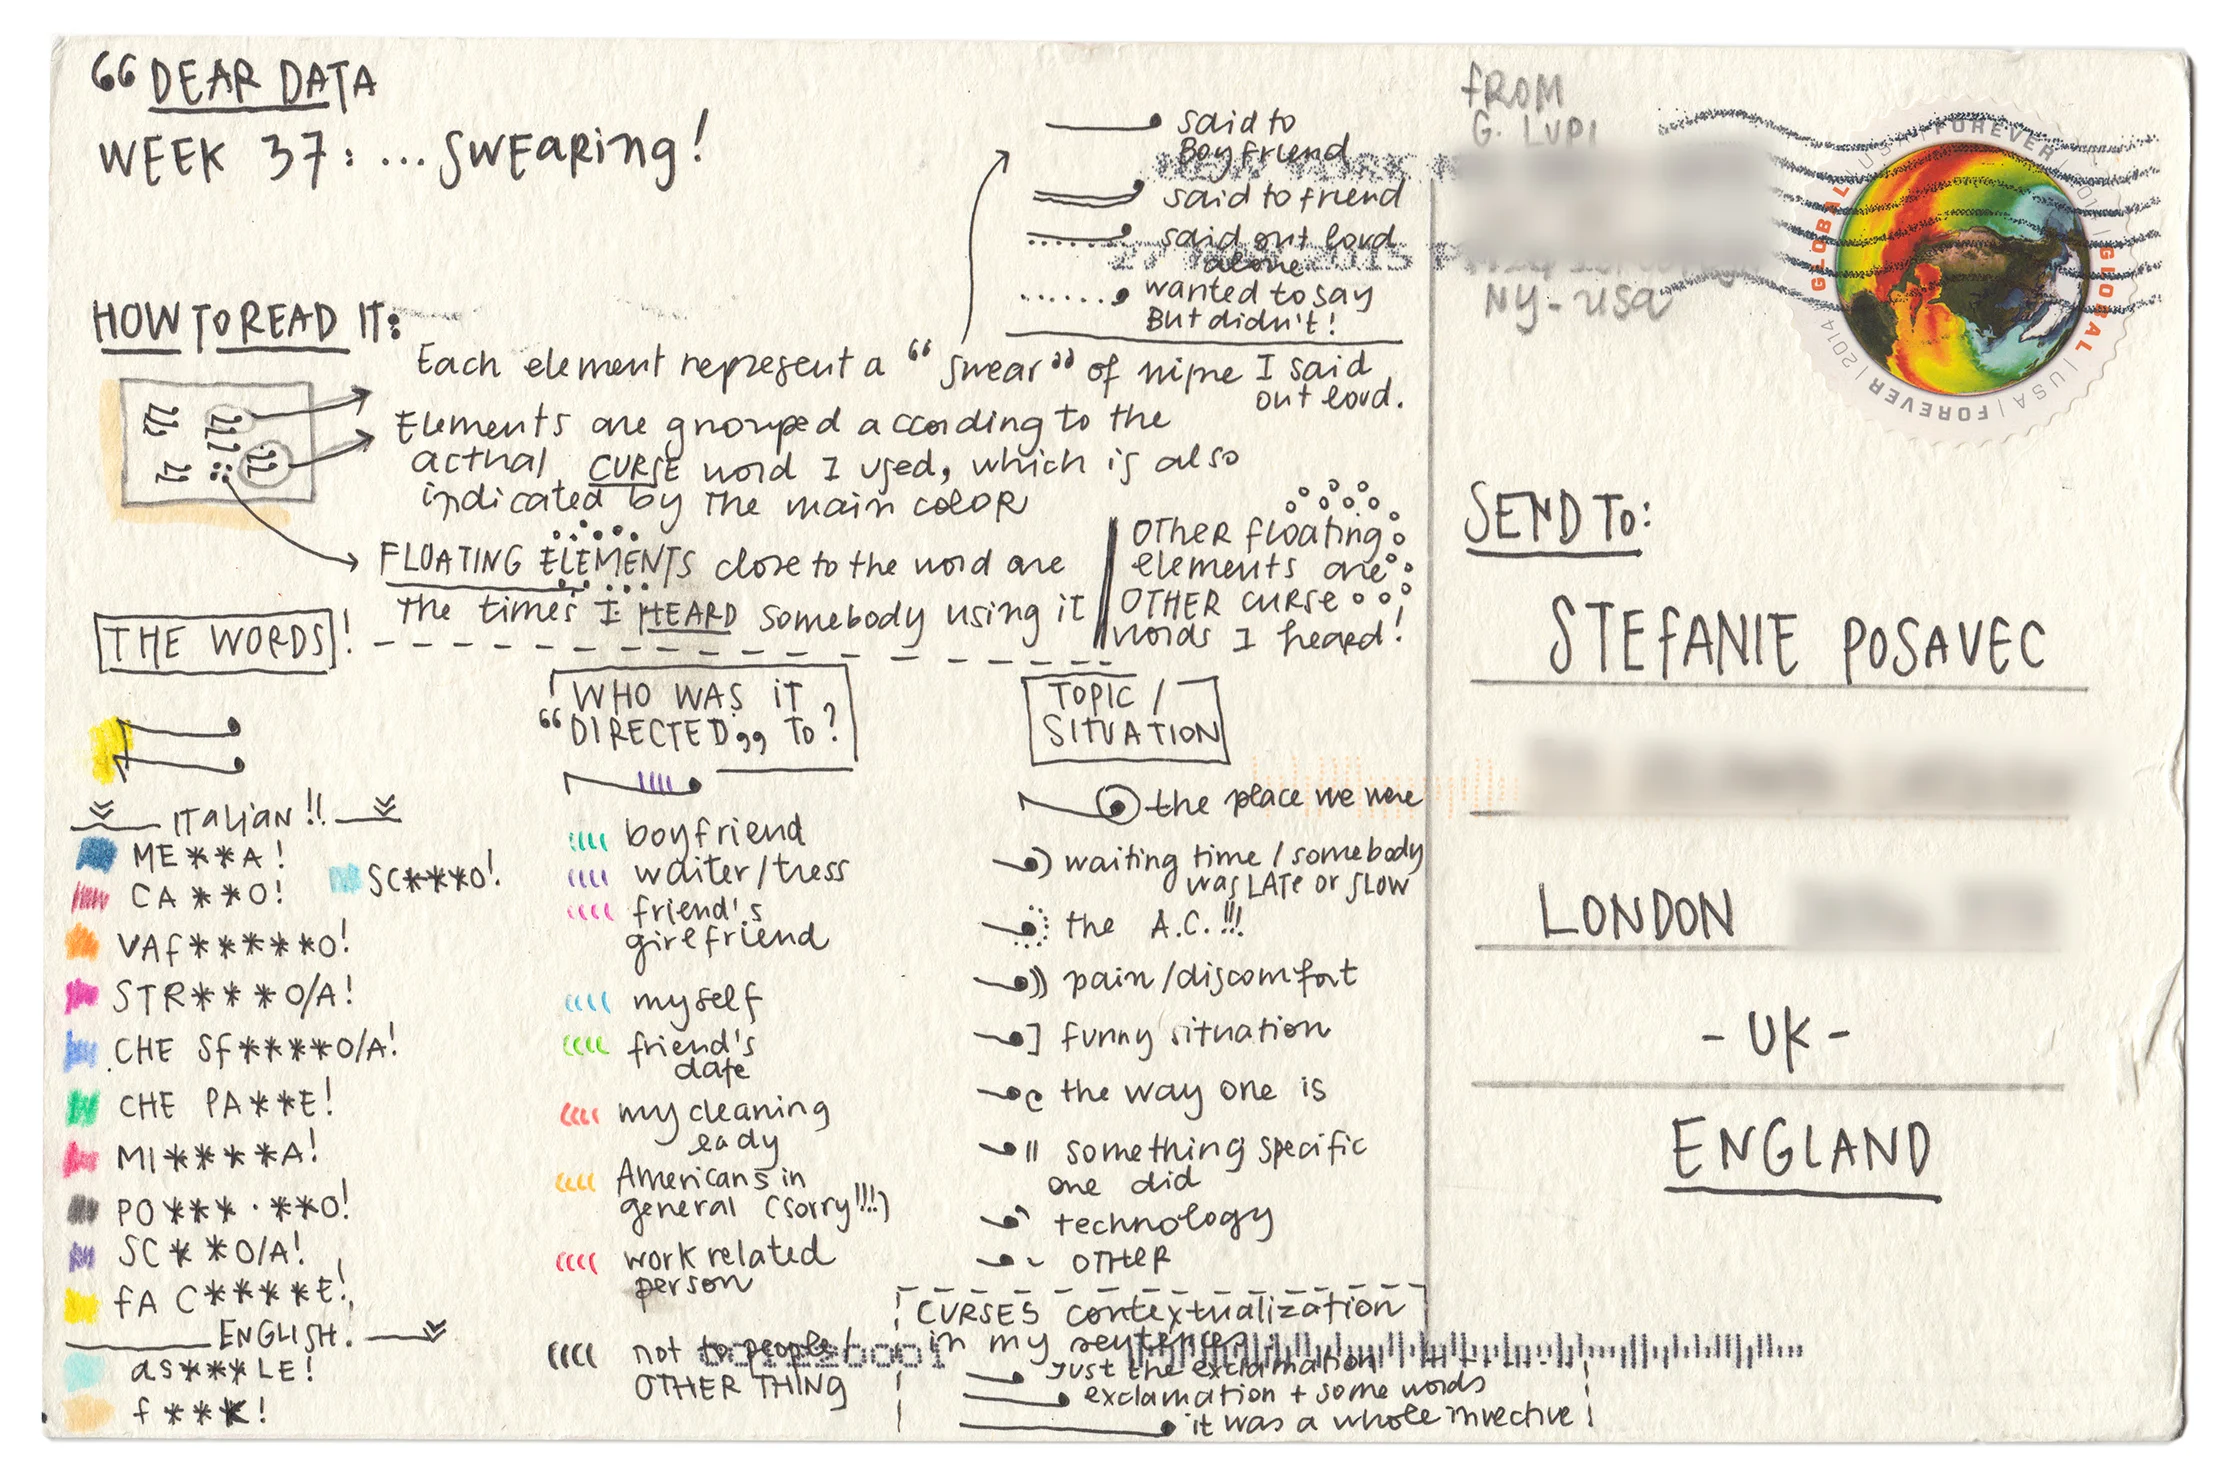 “ DEAR DATA
WEEK 37: ... SWEARING!
said to
Boyfriend
said to friend
said out loud
alone
wanted to say
But didn't!
HOW TO READ IT:
Each element represent a “swear” of mine I said
out loud.
Elements are grouped according to the
actual CURSE word I used, which is also
indicated by the main color
FLOATING ELEMENTS close to the word are
the times I HEARD somebody using it
OTHER floating
elements are
OTHER curse
words I heard!
THE WORDS!
ITALIAN!!
ME**A!
SC***O!
CA**O!
VAF******O!
STR***O/A!
CHE SF****O/A!
CHE PA**E!
MI****A!
PO***.**O!
SC**O/A!
FA C****E!
ENGLISH.
as***LE!
f***K!
WHO WAS IT
“DIRECTED„ TO?
boyfriend
waiter/tress
friend's
girlfriend
myself
friend's
date
my cleaning
lady
Americans in
general (sorry!!!)
work related
person
not to people/
OTHER THING
TOPIC/
SITUATION
the place we were
waiting time / somebody
was LATE or SLOW
the A.C.!!!
pain/discomfort
funny situation
the way one is
something specific
one did
technology
OTHER
CURSES contextualization
in my sentences
Just the exclamation
exclamation + some words
it was a whole invective
FROM
G. LUPI
NY-USA
GLOBAL | USA | FOREVER | 2014 | GLOBAL | USA | FOREVER | 2014
SEND TO:
STEFANIE POSAVEC
LONDON
- UK -
ENGLAND